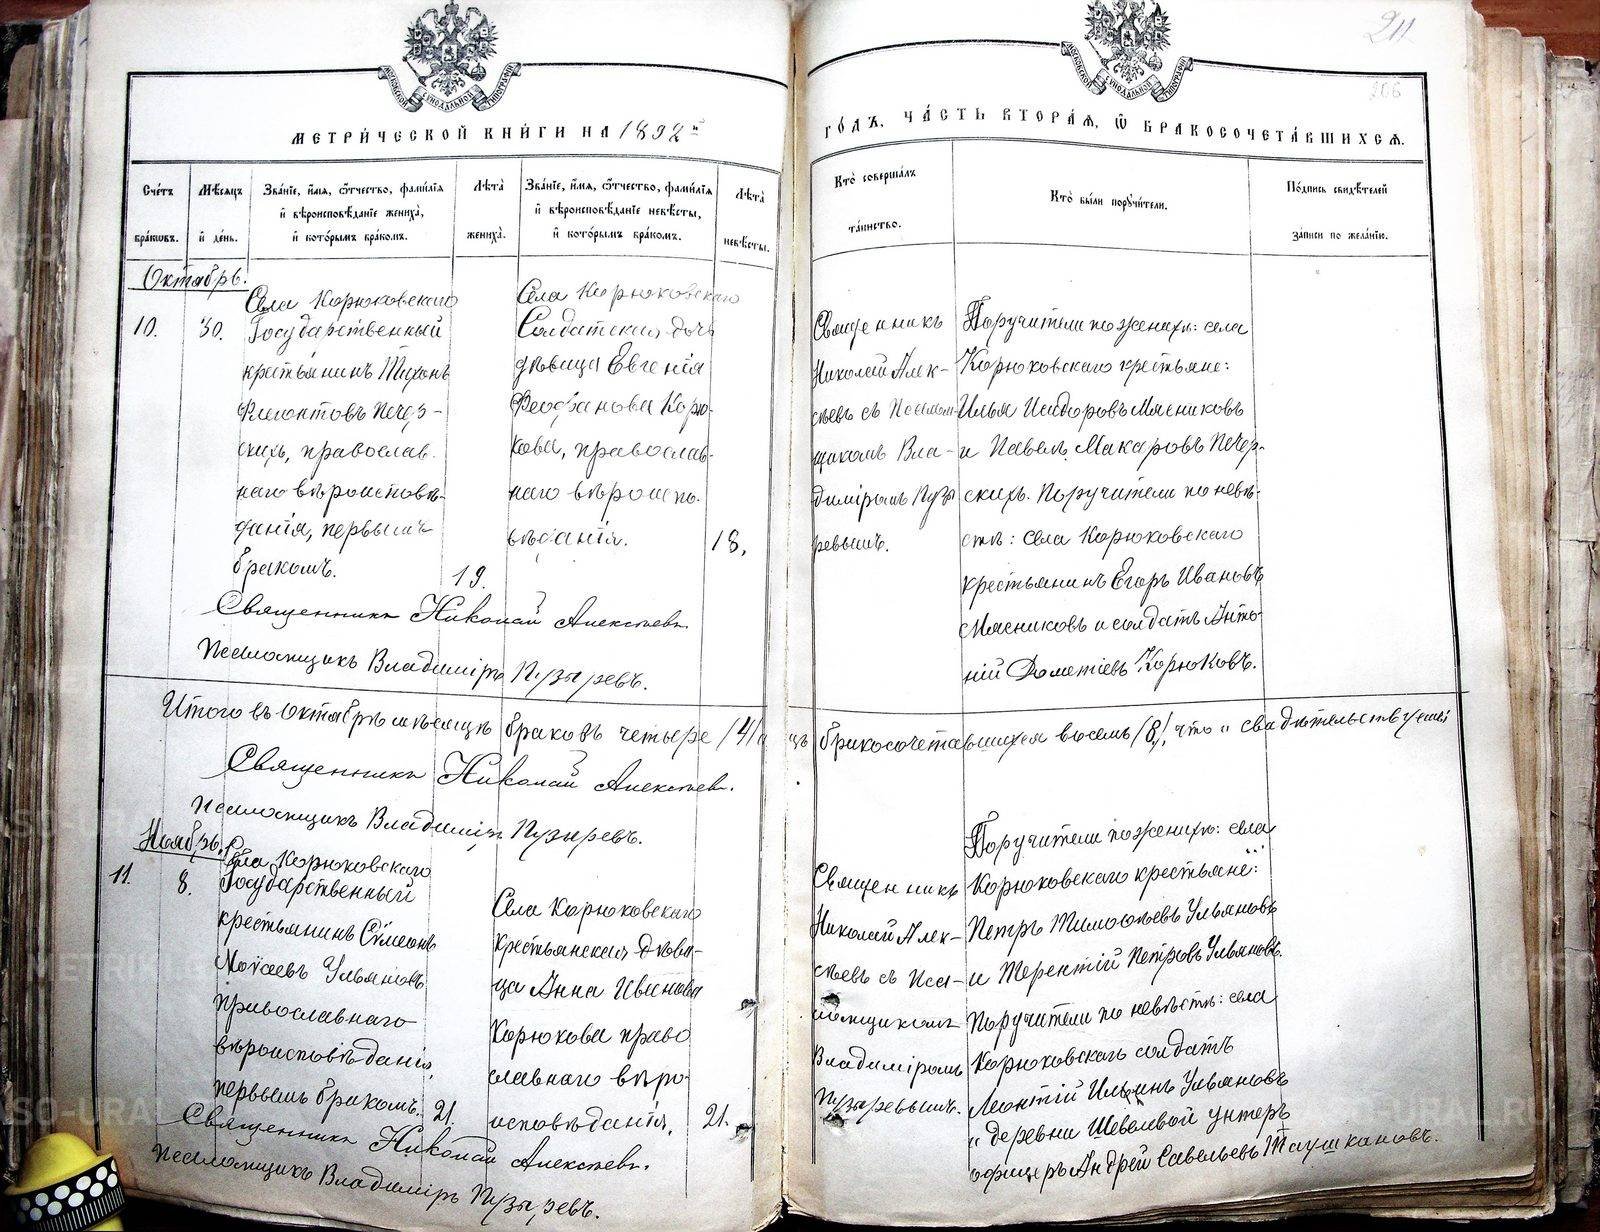 211
206
МОСКОВСКОЙ СѴНОДАЛЬНОЙ ТИПОГРАФІИ
МОСКОВСКОЙ СѴНОДАЛЬНОЙ ТИПОГРАФІИ
МЕТРИ́ЧЕСКОЙ КНИ́ГИ НА 1892й
ГО́ДЪ, ЧА́СТЬ ВТОРА́Ѧ, Ѽ БРАКОСОЧЕТА́ВШИХСѦ.
Сче́тъ бра́кѡвъ.
Мѣ́сѧцъ и де́нь.
Зва́нїе, и́мѧ, ѻ҆́тчество, фами́лїѧ
и҆ вѣроисповѣ́данїе жениха̀,
и҆ кото́рымъ бра́комъ.
Лѣ́та жениха̀.
Зва́нїе, и́мѧ, ѻ҆́тчество, фами́лїѧ
и҆ вѣроисповѣ́данїе невѣ́сты,
и҆ кото́рымъ бра́комъ.
Лѣ́та невѣ́сты.
Кто̀ соверша́лъ
та́инство.
Кто̀ бы́ли порꙋчи́тели.
По́дпись свидѣ́телей
за́писи по жела́нїю.
Октябрь.
10.
30.
Села Корюковскаго
Государственный
крестьянинъ Тихонъ
Филонтовъ Печер-
скихъ, православ-
наго вѣроисповѣ-
данія, первымъ
бракомъ.
19.
Села Корюковскаго
Солдатская дочь
дѣвица Евгенія
Феофанова Корю-
кова, православ-
наго вѣроиспо-
вѣданія.
18.
Священникъ
Николай Алек-
сѣевъ съ Псалом-
щикомъ Вла-
димиромъ Пузы
ревымъ.
Поручители по женихѣ: села
Корюковскаго крестьяне:
Илья Исидоровъ Мясниковъ
и Павелъ Макаровъ Печер-
скихъ. Поручители по невѣ-
стѣ: села Корюковскаго
крестьянинъ Егоръ Ивановъ
Мясниковъ и солдатъ Анто-
ній Дометіевъ Корюковъ.
Священникъ Николай Алексѣевъ.
Псаломщикъ Владиміръ Пузыревъ.
Итого въ Октябрѣ мѣсяцѣ браковъ четыре /4/ а
цъ бракосочетавшихся восемь /8/, что и свидѣтельствуемъ
Священникъ Николай Алексѣевъ.
Псаломщикъ Владиміръ Пузыревъ.
Ноябрь.
11.
8.
Села Корюковскаго
Государственный
крестьянинъ Сѵмеонъ
Моѵсеевъ Ульяновъ
православнаго
вѣроисповѣданія,
первымъ бракомъ.
21.
Села Корюковскаго
крестьянская дѣви-
ца Анна Иванова
Корюкова право
славнаго вѣро-
исповѣданія.
21.
Священникъ
Николай Алек-
сѣевъ съ Пса-
ломщикомъ
Владиміромъ
Пузыревымъ.
Поручители по женихѣ: села
Корюковскаго крестьяне:
Петръ Тимоѳеевъ Ульяновъ
и Терентій Петровъ Ульяновъ.
Поручители по невѣстѣ: села
Корюковскаго солдатъ
Леонтій Ильинъ Ульяновъ
и деревни Шевелевой унтеръ
офицеръ Андрей Савельевъ Таушкановъ.
Священникъ Николай Алексѣевъ.
Псаломщикъ Владиміръ Пузыревъ.